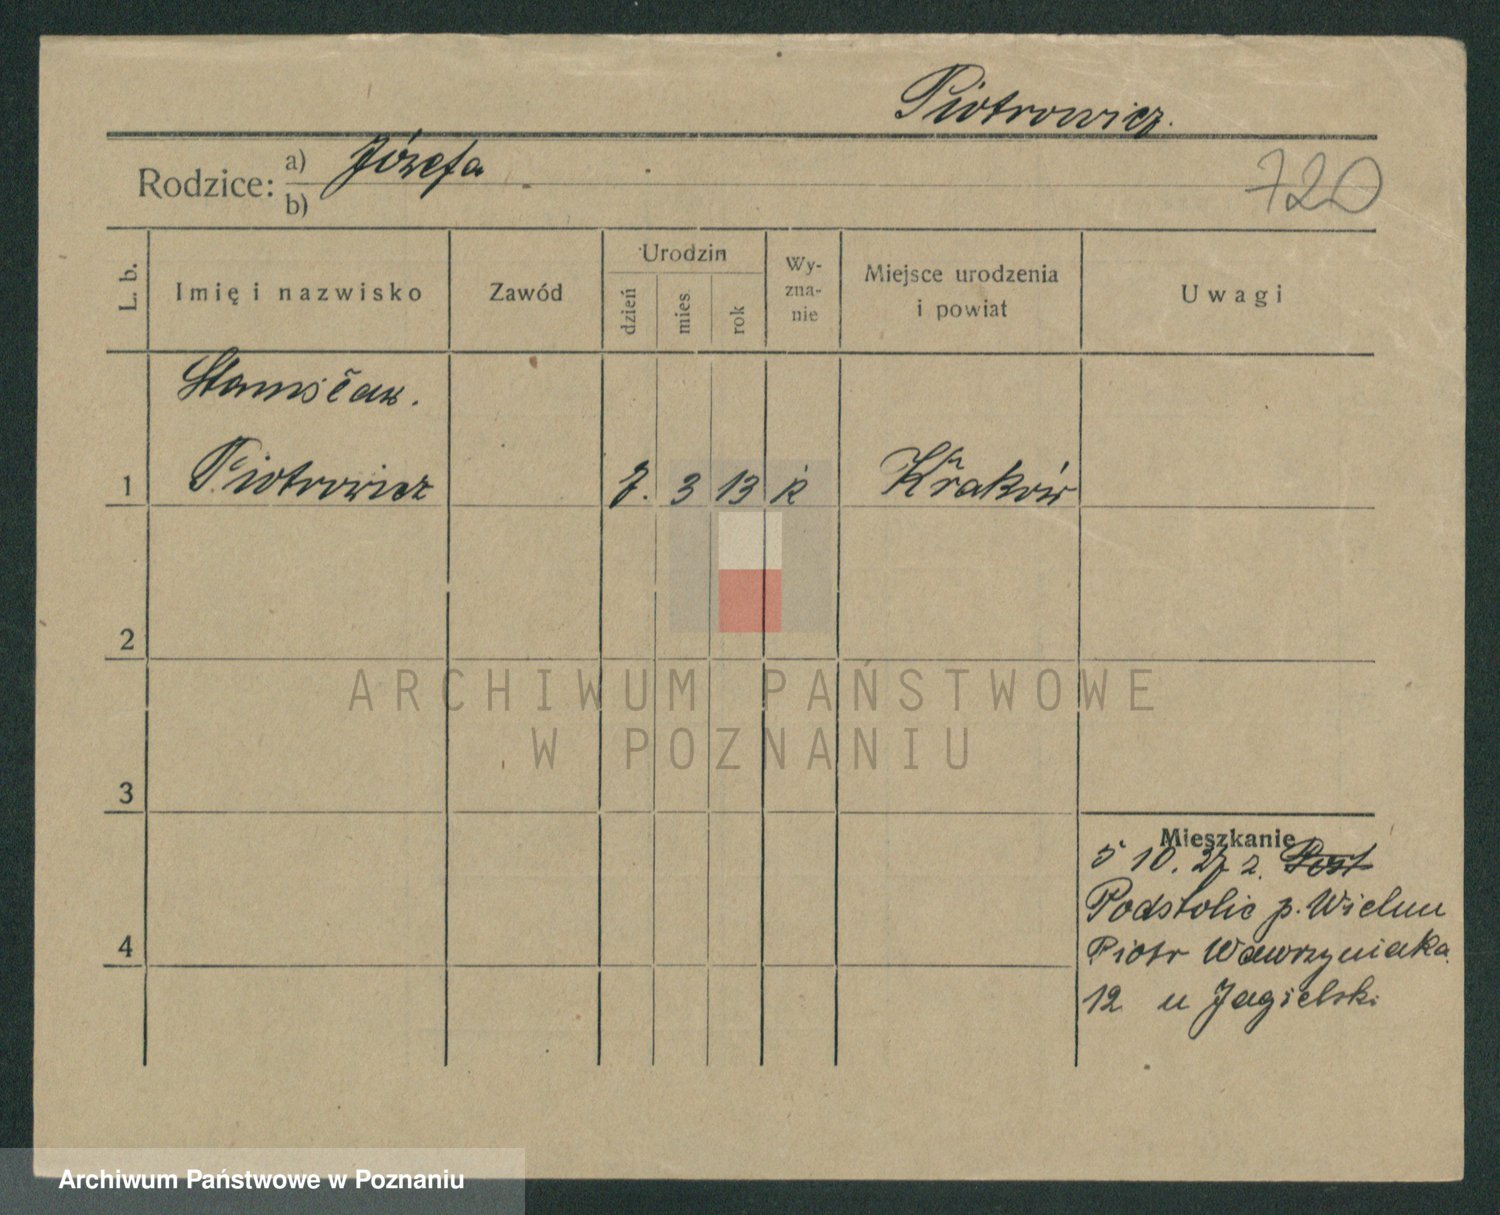 Piotrowicz.
Rodzice: a) Józefa
b)
720
L. b.
Imię i nazwisko
Zawód
Urodzin
dzień
mies
rok
Wy-
zna-
nie
Miejsce urodzenia
i powiat
Uwagi
Stanisław.
1 Piotrowicz 7. 3 13 k Kraków
2
3
4
ARCHIWUM PAŃSTWOWE
W POZNANIU
Mieszkanie
5 10. 27 z. Post
Podstolic p. Wielun
Piotr Wawrzyniaka
12 u Jagielski
Archiwum Państwowe w Poznaniu